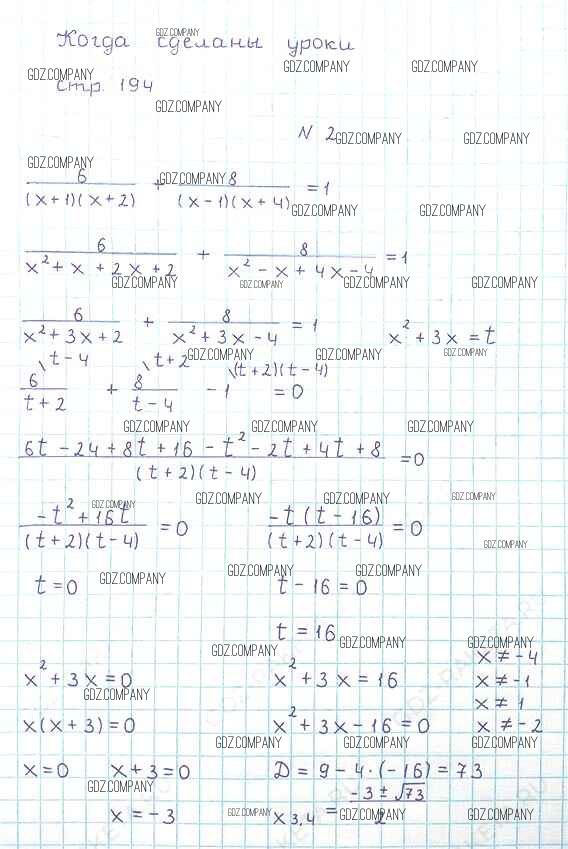 Когда сделаны уроки
GDZ.COMPANY
GDZ.COMPANY GDZ.COMPANY GDZ.COMPANY
стр. 194
GDZ.COMPANY
N 2 GDZ.COMPANY GDZ.COMPANY
GDZ.COMPANY
6/((x+1)(x+2)) + 8/((x-1)(x+4)) = 1
GDZ.COMPANY
GDZ.COMPANY GDZ.COMPANY
6/(x²+x+2x+2) + 8/(x²-x+4x-4) = 1
GDZ.COMPANY GDZ.COMPANY GDZ.COMPANY GDZ.COMPANY
6/(x²+3x+2) + 8/(x²+3x-4) = 1 x²+3x=t
GDZ.COMPANY GDZ.COMPANY GDZ.COMPANY
\t-4 \t+2 \(t+2)(t-4)
6/(t+2) + 8/(t-4) - 1 = 0
GDZ.COMPANY GDZ.COMPANY GDZ.COMPANY
(6t-24+8t+16-t²-2t+4t+8)/((t+2)(t-4)) = 0
GDZ.COMPANY GDZ.COMPANY GDZ.COMPANY GDZ.COMPANY
(-t²+16t)/((t+2)(t-4)) = 0 (-t(t-16))/((t+2)(t-4)) = 0
GDZ.COMPANY
GDZ.COMPANY GDZ.COMPANY GDZ.COMPANY
t=0 t-16=0
t=16
GDZ.COMPANY GDZ.COMPANY GDZ.COMPANY
x≠-4
x²+3x=0 x²+3x=16 x≠-1
GDZ.COMPANY
x≠1
x(x+3)=0 x²+3x-16=0 x≠-2
GDZ.COMPANY GDZ.COMPANY GDZ.COMPANY
x=0 x+3=0 D=9-4·(-16)=73
GDZ.COMPANY
x=-3 x3,4=(-3±√73)/2
GDZ.COMPANY GDZ.COMPANY GDZ.COMPANY